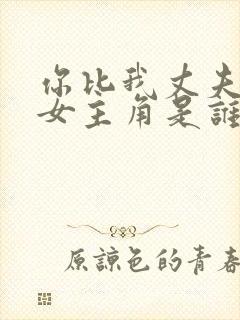 你比我丈夫
女主角是誰
原諒色的青春